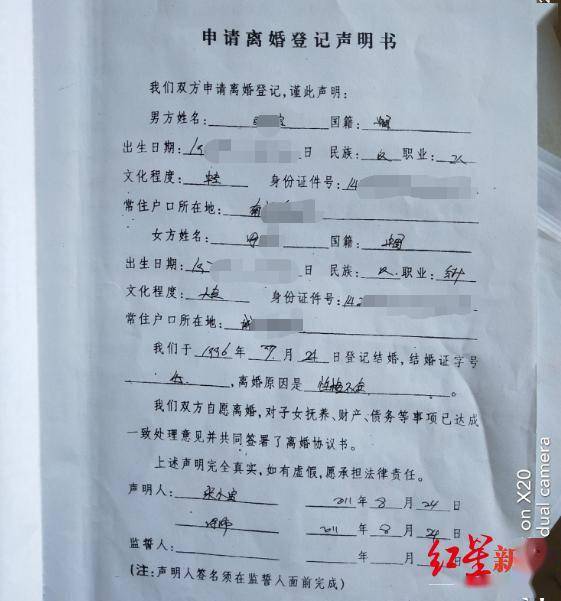 申请离婚登记声明书
我们双方申请离婚登记,谨此声明:
男方姓名: 国籍:中国
出生日期:19 日 民族:汉 职业:工人
文化程度: 身份证件号:14
常住户口所在地:
女方姓名: 国籍:中国
出生日期:19 日 民族:汉 职业:
文化程度:大专 身份证件号:142
常住户口所在地:
我们于 1996 年 月 24 日登记结婚,结婚证字号
,离婚原因是 性格不合 。
我们双方自愿离婚,对子女抚养、财产、债务等事项已达成
一致处理意见并共同签署了离婚协议书。
上述声明完全真实,如有虚假,愿承担法律责任。
声明人: 2011 年 8 月 24 日
2011 年 8 月 24 日
监誓人: 年 月 日
(注:声明人签名须在监誓人面前完成)
红星新
on X20
dual camera